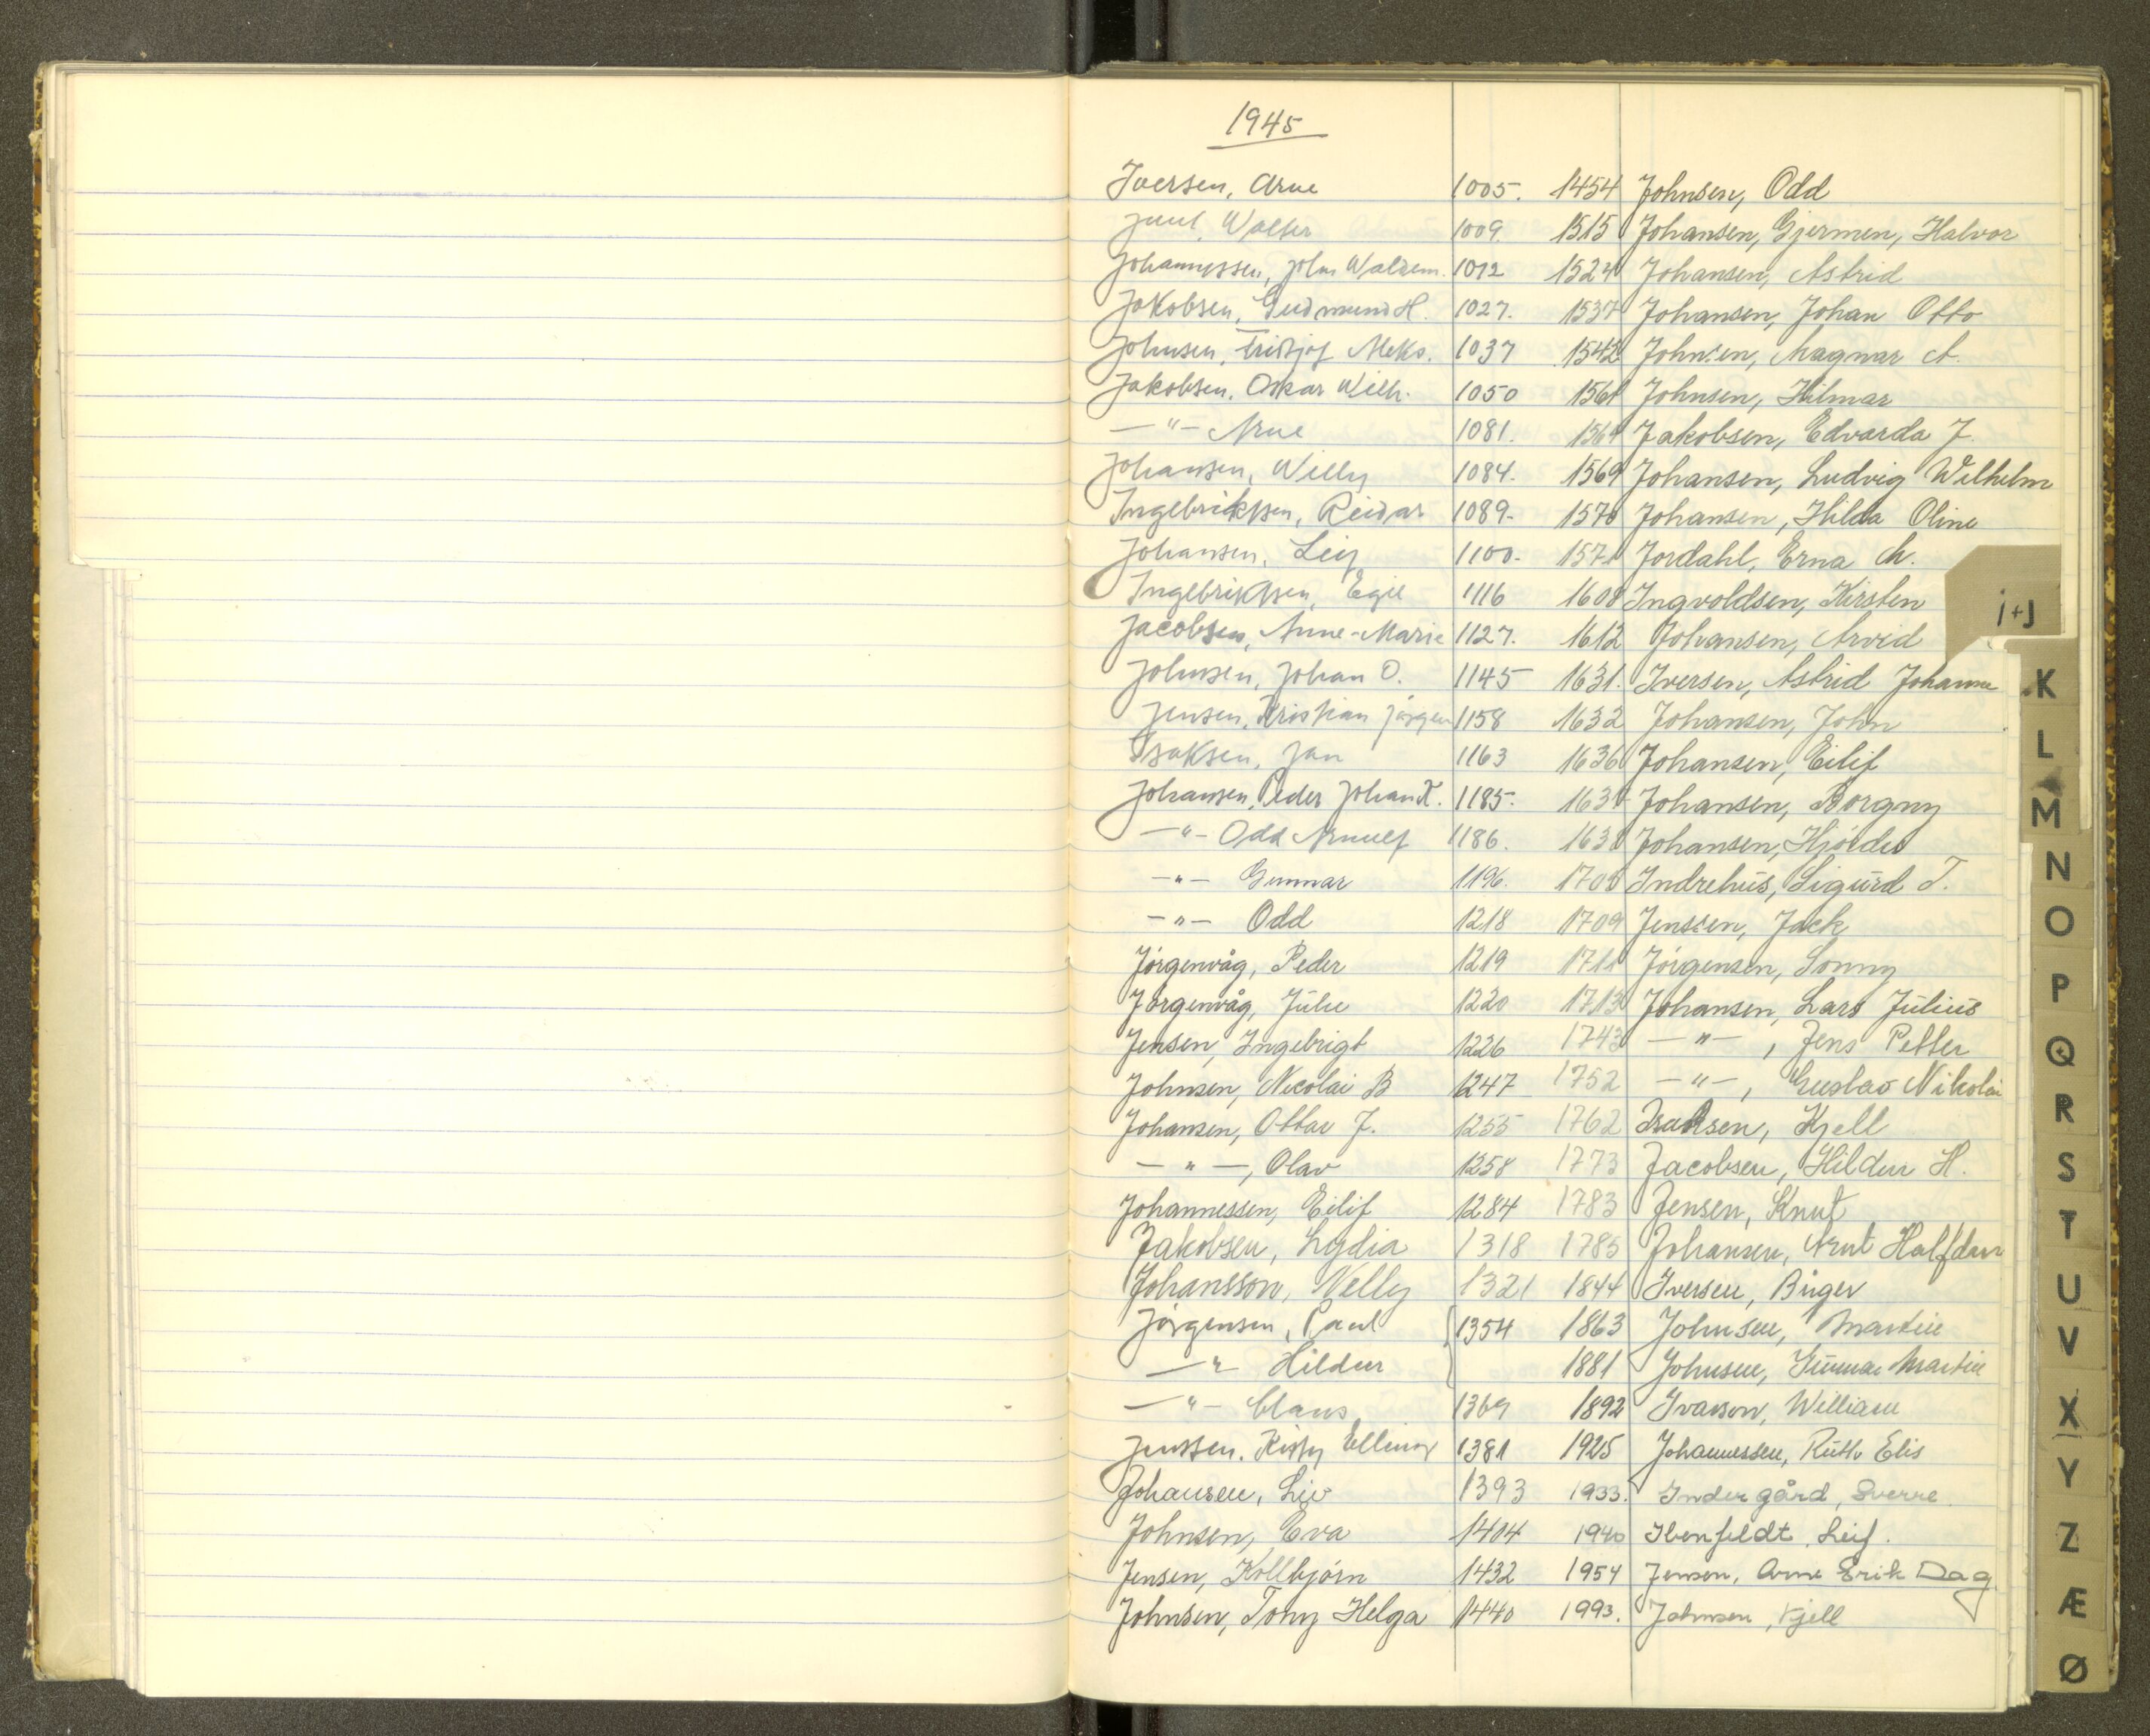 1945
Iversen, Arne 1005. 1454 Johnsen, Odd
Juul, Walter 1009. 1515 Johansen, Gjermen, Halvor
Johannessen, John Waldem. 1012 1524 Johansen, Astrid
Jakobsen, Gudmund H. 1027. 1537 Johansen, Johan Otto
Johnsen, Fridtjof Aleks. 1037 1542 Johnsen, Magnar A.
Jakobsen, Oskar Wilh. 1050 1561 Johnsen, Hilmar
—"— Arne 1081. 1564 Jakobsen, Edvarda J.
Johansen, Willy 1084. 1569 Johansen, Ludvig Wilhelm
Ingebriktsen, Reidar 1089- 1570 Johansen, Hilda Oline
Johansen, Leif 1100- 1571 Jordahl, Erna M.
Ingebriktsen, Egil 1116 1608 Ingvoldsen, Kirsten
i+J
Jacobsen, Anne-Marie 1127. 1612 Johansen, Arvid
Johnsen, Johan O. 1145 1631. Iversen, Astrid Johanne
K
Jensen, Kristian Jørgen 1158 1632 Johansen, John
Isaksen, Jan 1163 1636 Johansen, Eilif
L
Johansen, Peder Johan K. 1185. Johansen, Borgny
M
—"— Odd Arnulf 1186. 1638 Johansen, Hjørdis
—"— Gunnar 1196. 1708 Indrehus, Sigurd T.
N
—"— Odd 1218 1709 Jenssen, Jack
O
Jørgenvåg, Peder 1219 1711 Jørgensen, Sonny
Jørgenvåg, Julie 1220 1713 Johansen, Lars Julius
P
Jensen, Ingebrigt 1226 1743 —"—, Jens Petter
Q
Johnsen, Nicolai B 1247 1752 —"—, Gustav Nikolai
R
Johansen, Ottar J. 1255 1762 Isaksen, Kjell
—"—, Olav 1258 1773 Jacobsen, Hildur H.
S
Johannessen, Eilif 1284 1783 Jensen, Knut
T
Jakobsen, Lydia 1318 1785 Johansen, Arnt Halfdan
Johansson, Nelly 1321 1844 Iversen, Birger
U
Jørgensen, Paul 1354 1863 Johnsen, Martin
V
—"— Hildur 1881 Johnsen, Martin
—"— Claus 1369 1892 Ivarson, William
X
Jenssen, Kitty Ellinor 1381 1925 Johannessen, Ruth Elis
Y
Johansen, Liv 1393 1933. Indergård, Sverre
Johnsen, Eva 1404 1940 Ibenfeldt, Leif.
Z
Jensen, Kollbjørn 1432 1954 Jensen, Arne Erik Dag
Æ
Johnsen, Tony Helga 1440 1993. Johnsen, Kjell
Ø